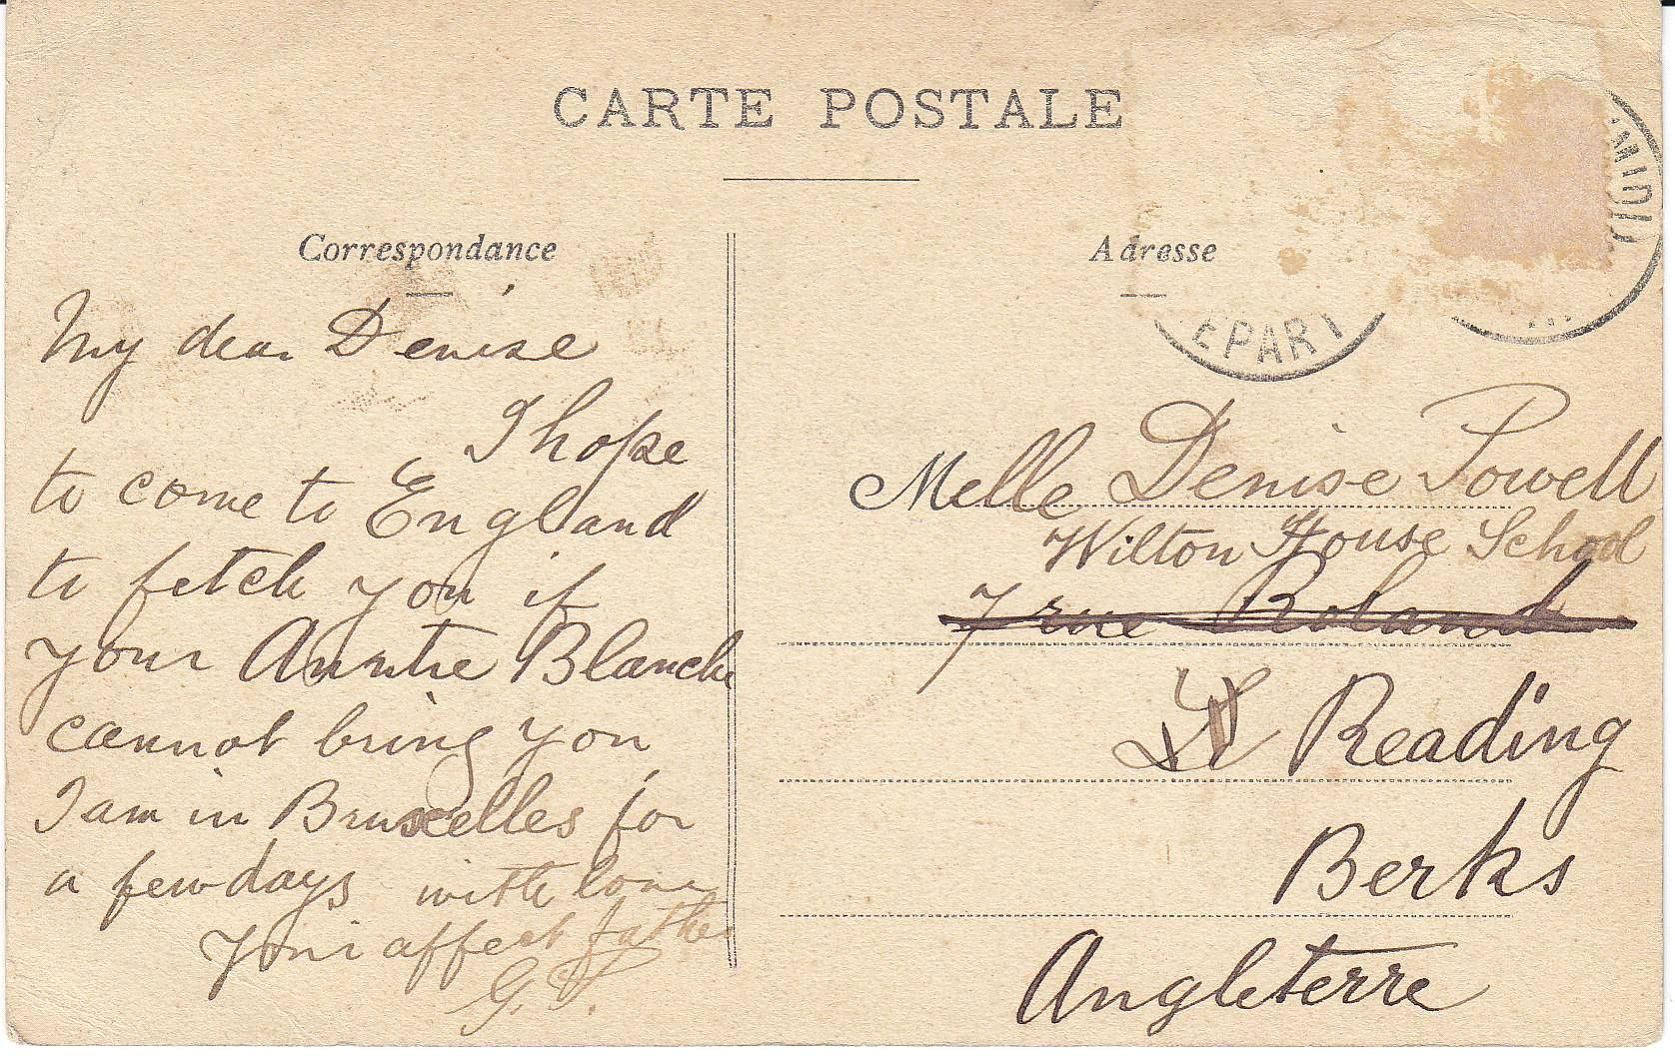 CARTE POSTALE
Correspondance
My dear Denise
I hope
to come to England
to fetch you if
your Auntie Blanche
cannot bring you
I am in Bruxelles for
a few days with love
Your affect father
G.P.
Adresse
EPART
MIDI
Melle Denise Powell
Wilton House School
7 rue Roland
Reading
Berks
Angleterre